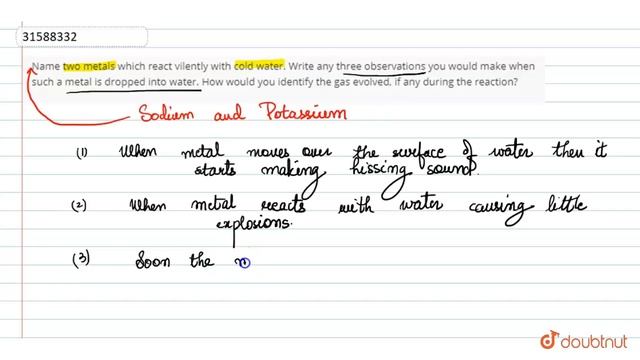 31588332
Name two metals which react vilently with cold water. Write any three observations you would make when
such a metal is dropped into water. How would you identify the gas evolved, if any during the reaction?
Sodium and Potassium
(1) When metal moves over the surface of water then it
starts making hissing sound.
(2) When metal reacts with water causing little
explosions.
(3) Soon the
doubtnut